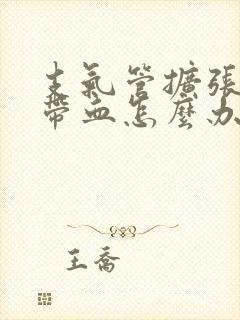 支氣管擴張
帶血怎麼办
王喬